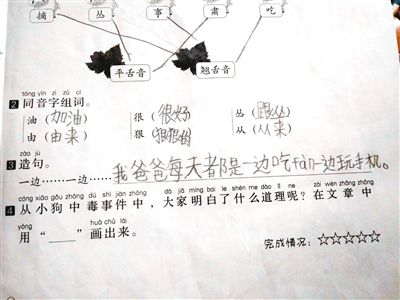 摘 丛 事 肃 吃
平舌音 翘舌音
tóng yīn zì zǔ cí
2 同音字组词。
油（加油） 很（很好） 丛（丛）
由（由来） 狠（狠狠的） 从（从来）
zào jù
3 造句。
一边……一边……我爸爸每天都是一边吃fàn一边玩手机。
cóng xiǎo gǒu zhòng dú shì jiàn zhōng dà jiā míng bai le shén me dào lǐ ne zài wén zhāng zhōng
4 从小狗中毒事件中，大家明白了什么道理呢？在文章中
yòng huà chū lái
用“____”画出来。
完成情况：☆☆☆☆☆